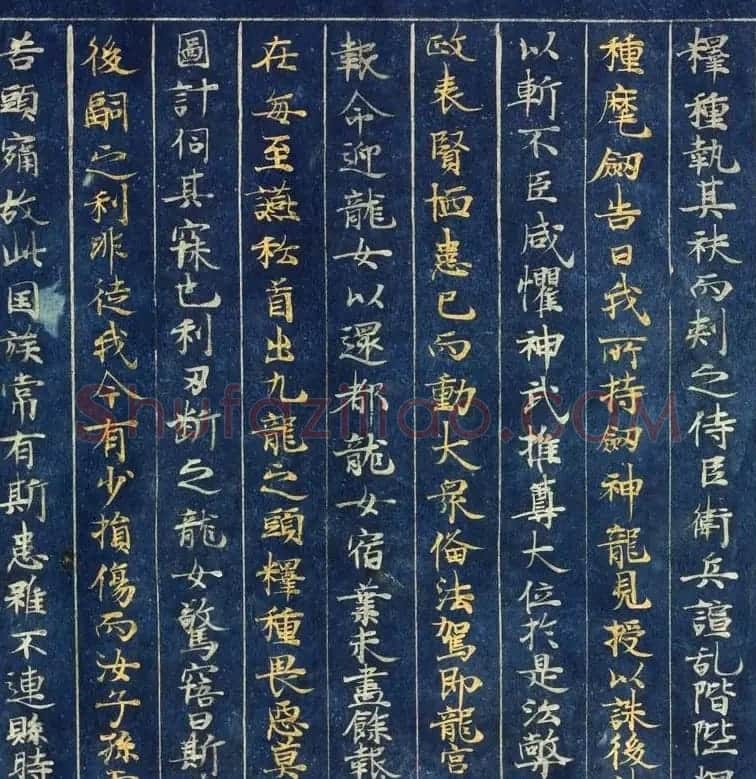 釋種執其袂而刾之侍臣衛兵諠乱階陛
種麾劔告曰我所持劔神龍見授以誅後
以斬不臣咸懼神武推尊大位於是沿弊
政表賢恤患已而動大衆俻法駕即龍宮
報命迎龍女以還都龍女宿業未盡餘報
在每至讌私首出九龍之頭釋種畏惡莫
圖計伺其寐也利刃断之龍女驚寤曰斯
後嗣之利非徒我命有少損傷而汝子孫
苦頭痛故此国族常有斯患雖不連緜時
Shufaziliao.com